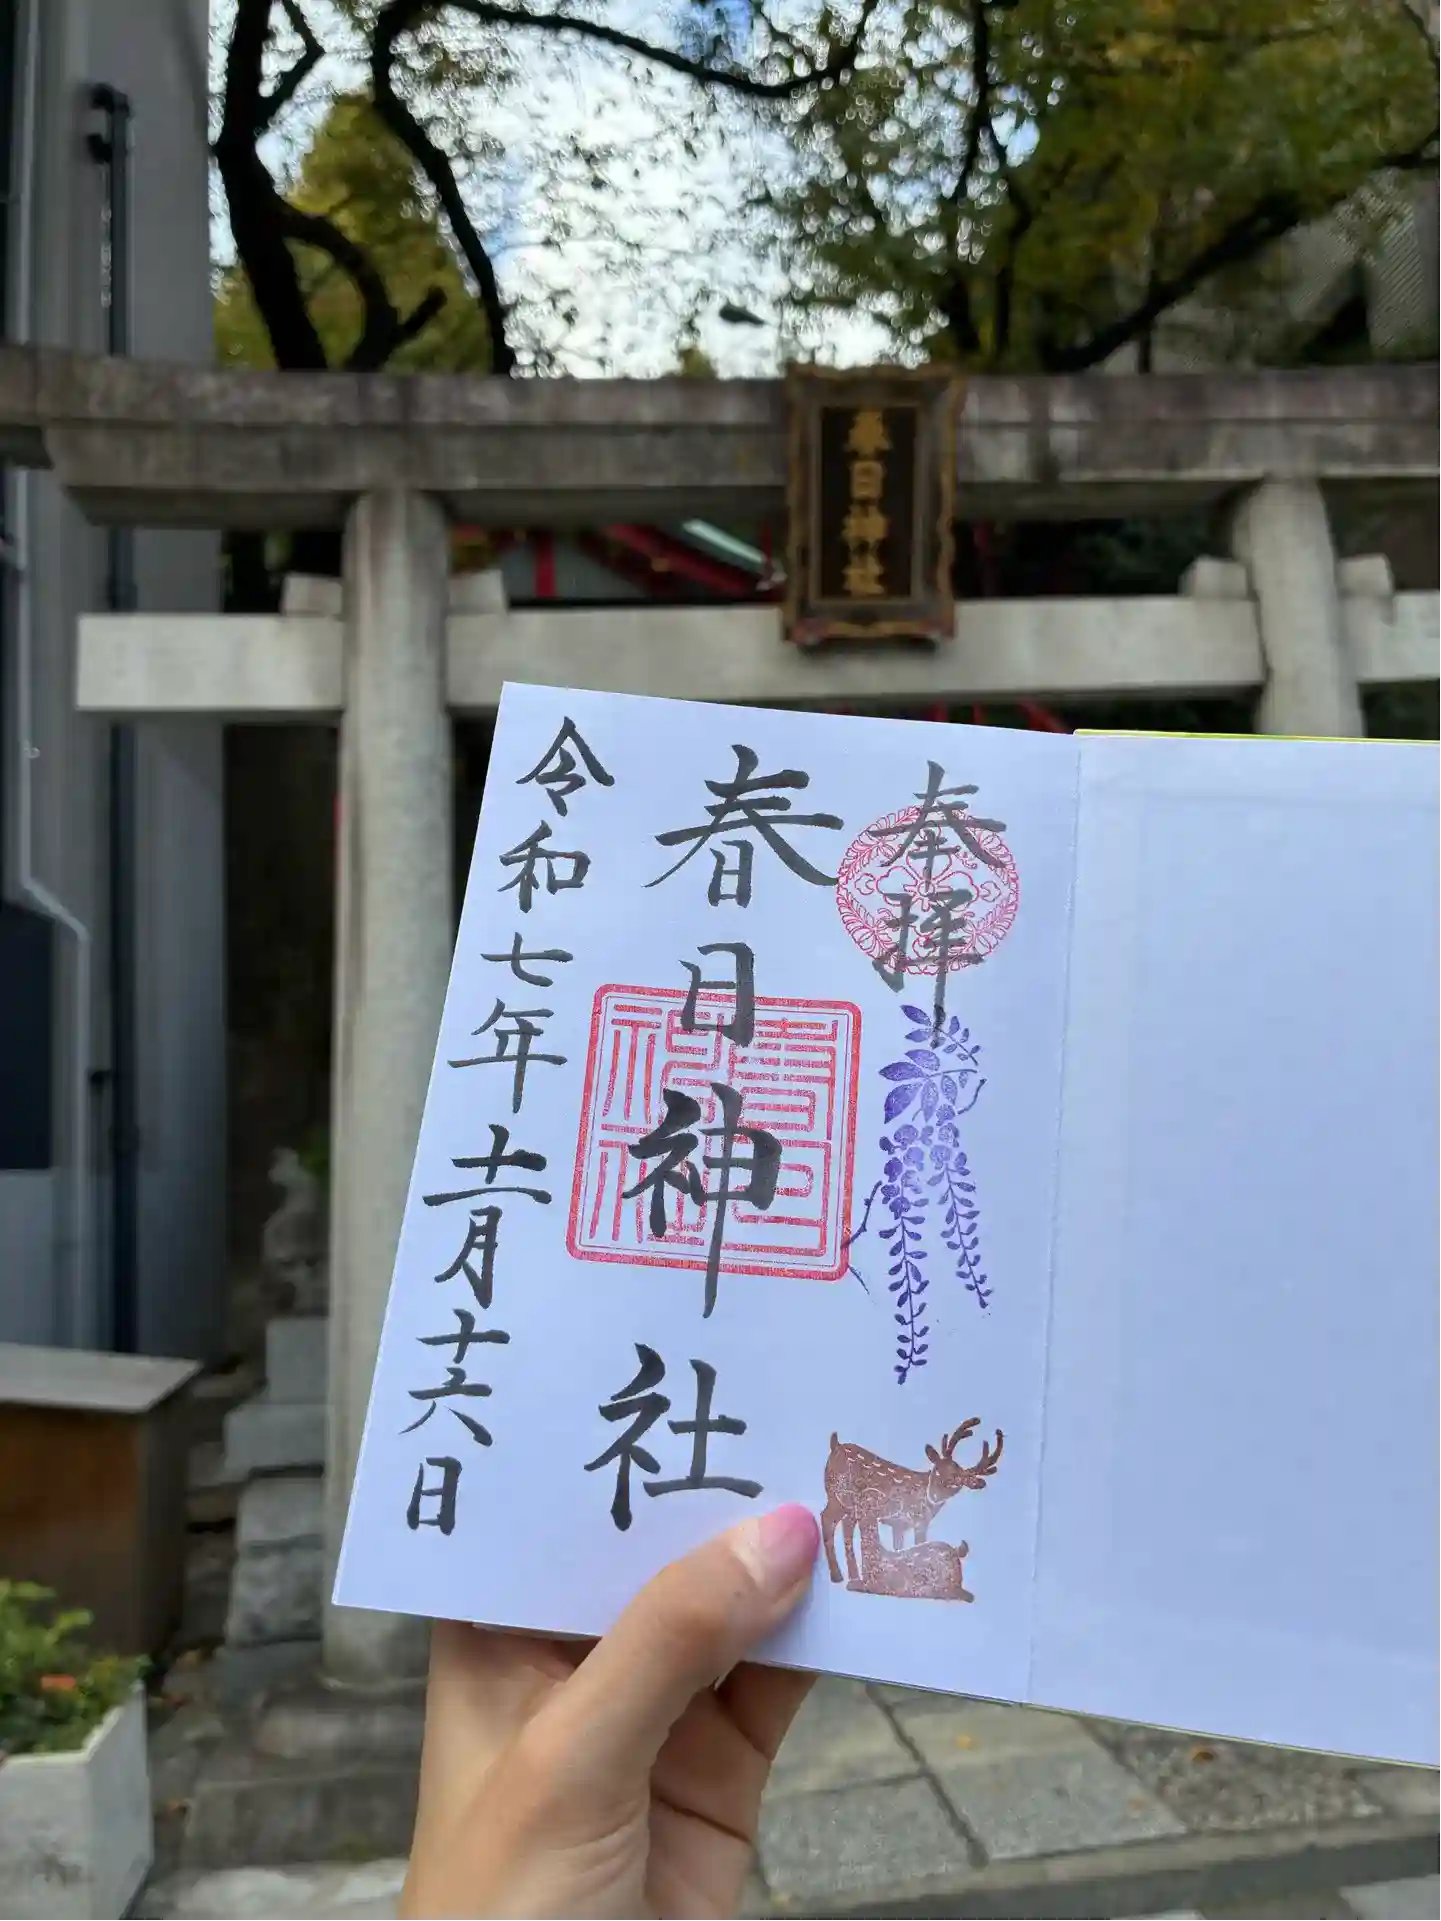 春日神社
奉拝
春日神社
春日神社
令和七年十一月十六日